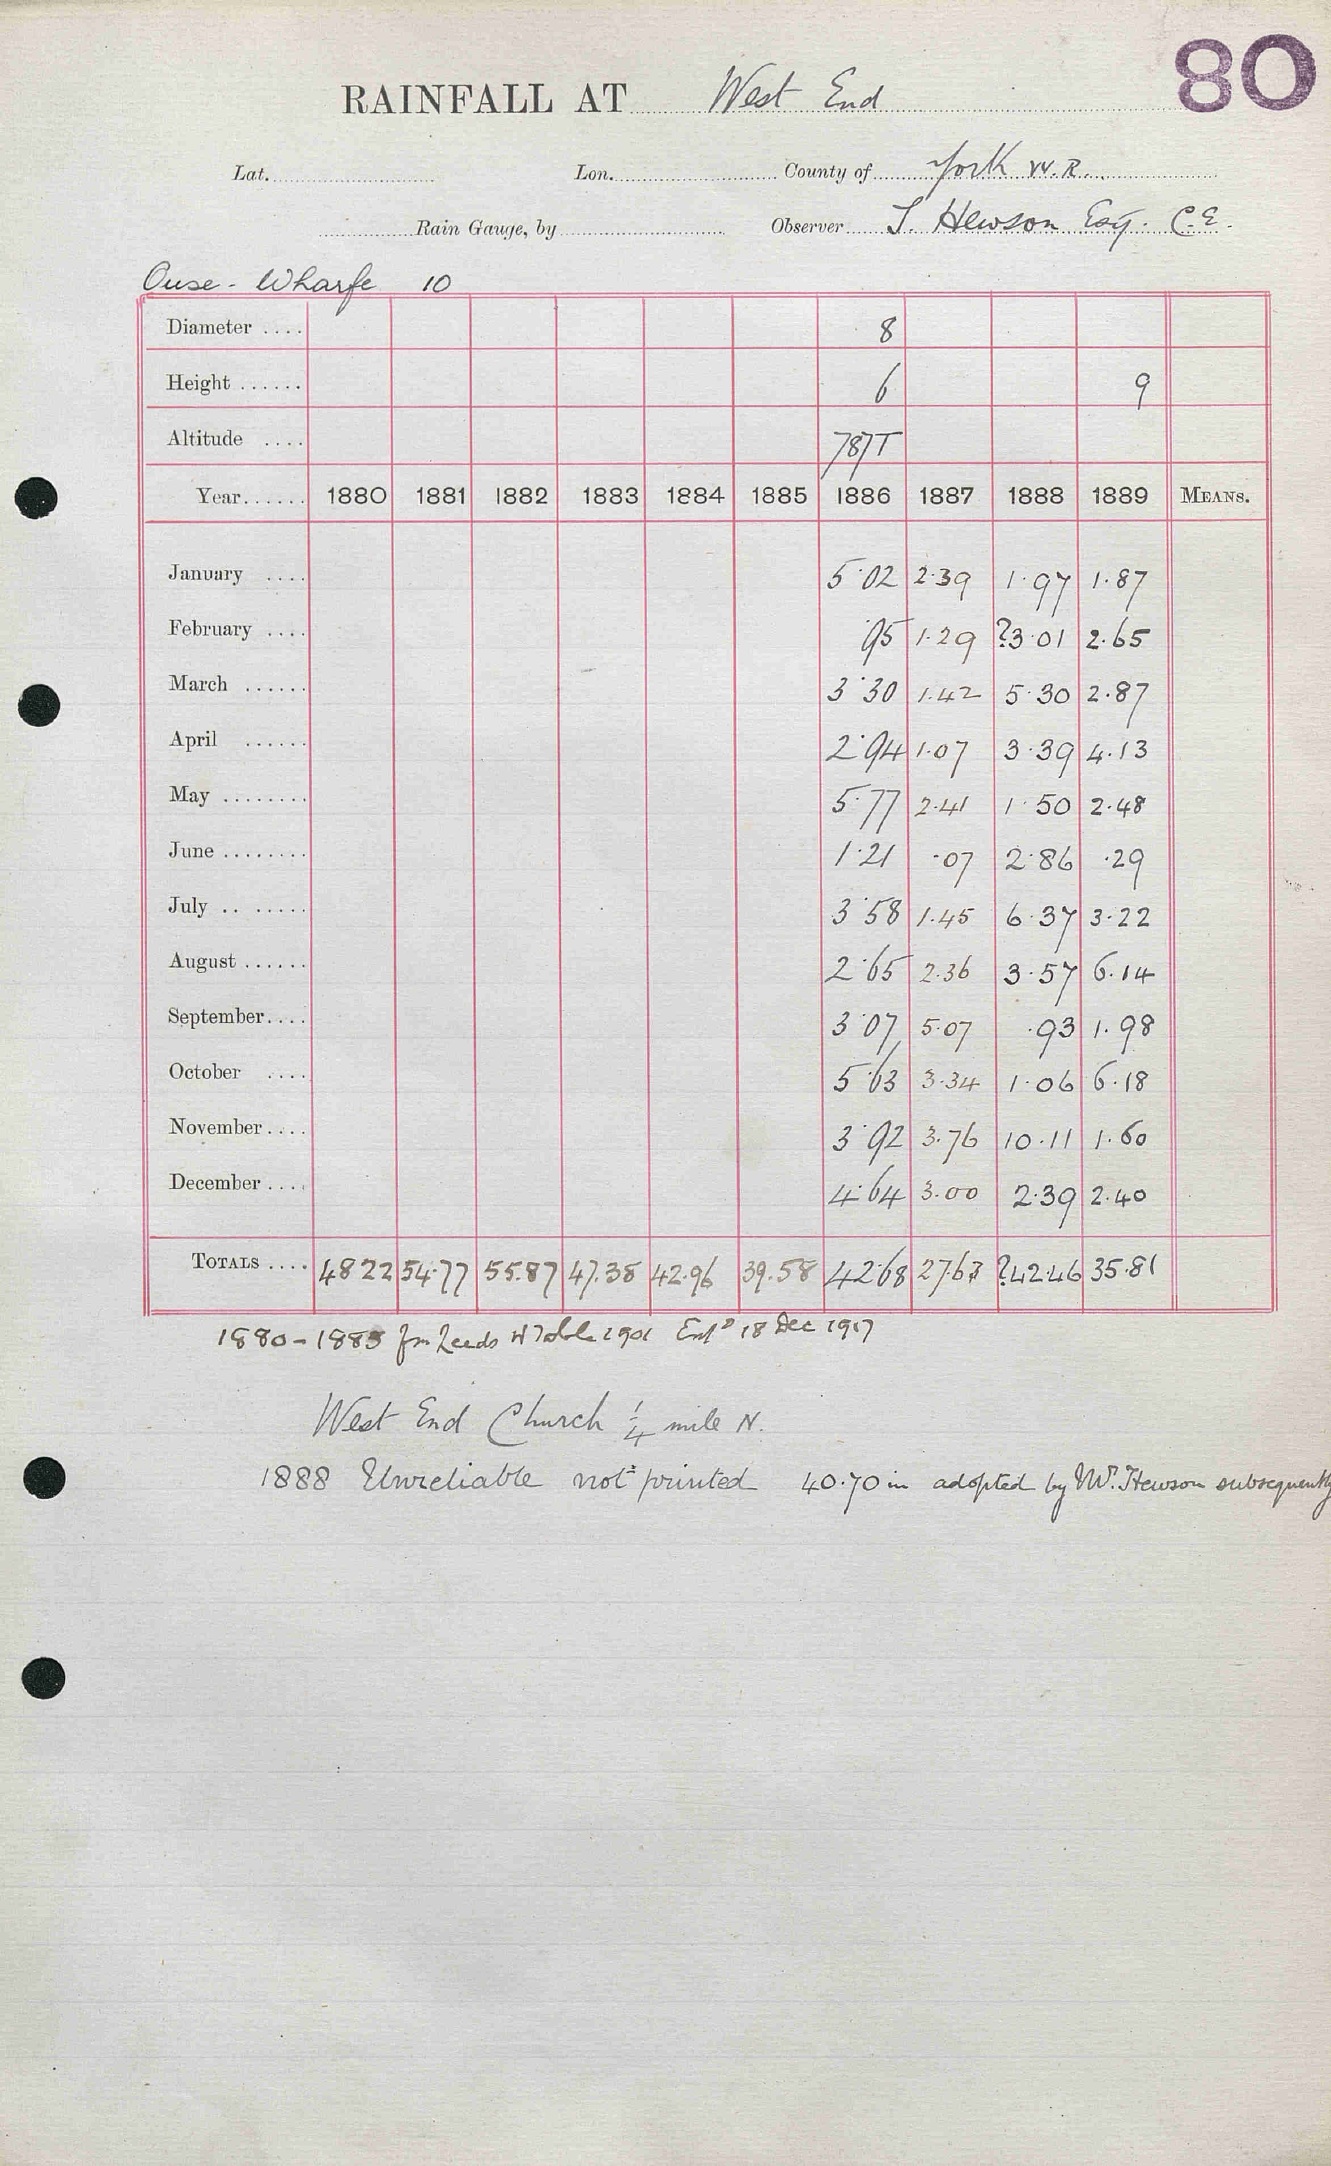 80
RAINFALL AT West End
Lat. Lon. County of York W.R.
Rain Gauge, by Observer T. Hewson Esq. C.E.
Ouse - Wharfe 10
Diameter .... 8
Height ...... 6 9
Altitude .... 787T
Year...... 1880 1881 1882 1883 1884 1885 1886 1887 1888 1889 MEANS.
January .... 5.02 2.39 1.97 1.87
February .... .95 1.29 ?3.01 2.65
March ...... 3.30 1.42 5.30 2.87
April ...... 2.94 1.07 3.39 4.13
May ........ 5.77 2.41 1.50 2.48
June ........ 1.21 .07 2.86 .29
July .. ..... 3.58 1.45 6.37 3.22
August ...... 2.65 2.36 3.57 6.14
September.... 3.07 5.07 .93 1.98
October .... 5.63 3.34 1.06 6.18
November.... 3.92 3.76 10.11 1.60
December.... 4.64 3.00 2.39 2.40
TOTALS .... 48.22 54.77 55.87 47.38 42.96 39.58 42.68 27.63 ?42.46 35.81
1880-1885 fm Leeds 1901 Entd 18 Dec 1917
West End Church 1/4 mile N.
1888 Unreliable not printed 40.70 in adopted by Mr. Hewson subsequently